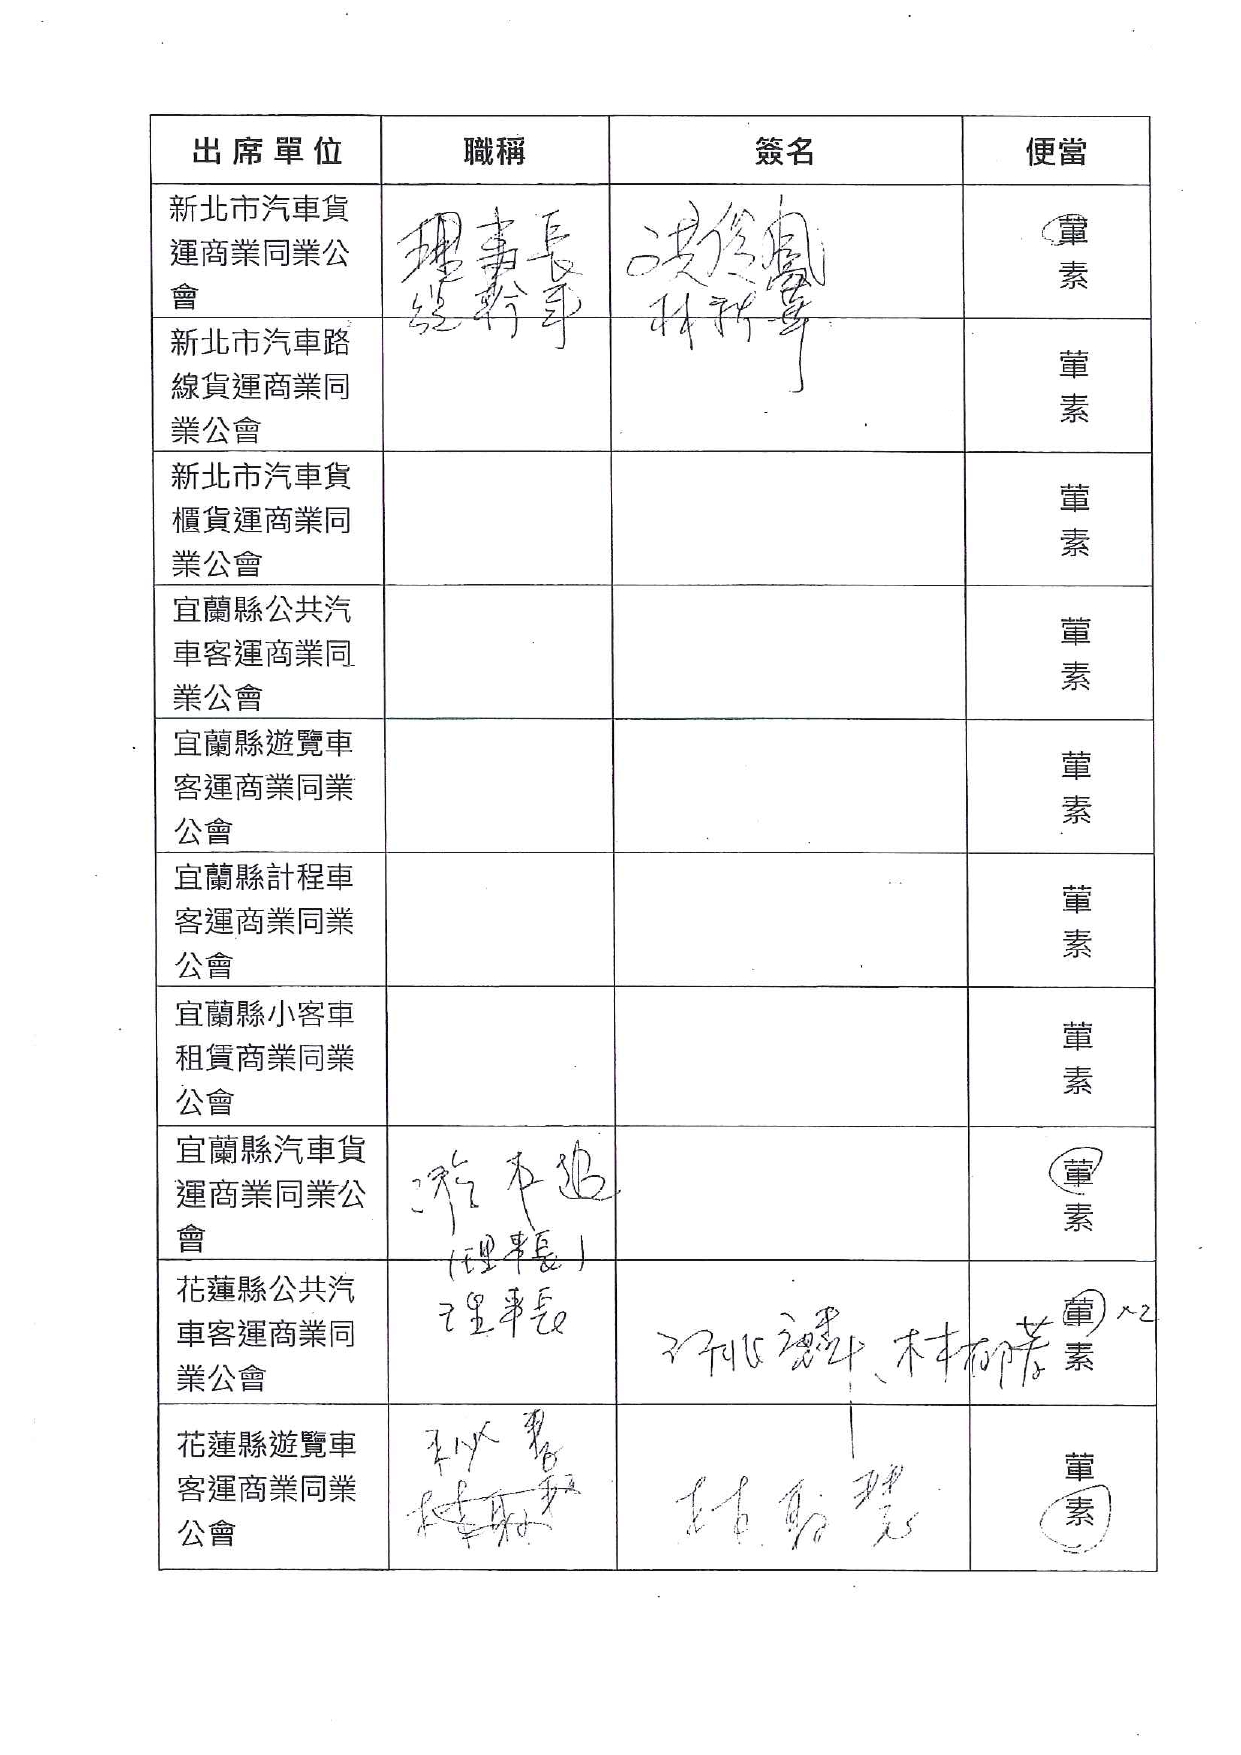 出席單位 職稱 簽名 便當
新北市汽車貨
運商業同業公
會
理事長
總幹事
葷
素
新北市汽車路
線貨運商業同
業公會
葷
素
新北市汽車貨
櫃貨運商業同
業公會
葷
素
宜蘭縣公共汽
車客運商業同
業公會
葷
素
宜蘭縣遊覽車
客運商業同業
公會
葷
素
宜蘭縣計程車
客運商業同業
公會
葷
素
宜蘭縣小客車
租賃商業同業
公會
葷
素
宜蘭縣汽車貨
運商業同業公
會
(理事長)
葷
素
花蓮縣公共汽
車客運商業同
業公會
理事長
葷 ×2
素
花蓮縣遊覽車
客運商業同業
公會
秘書
葷
素